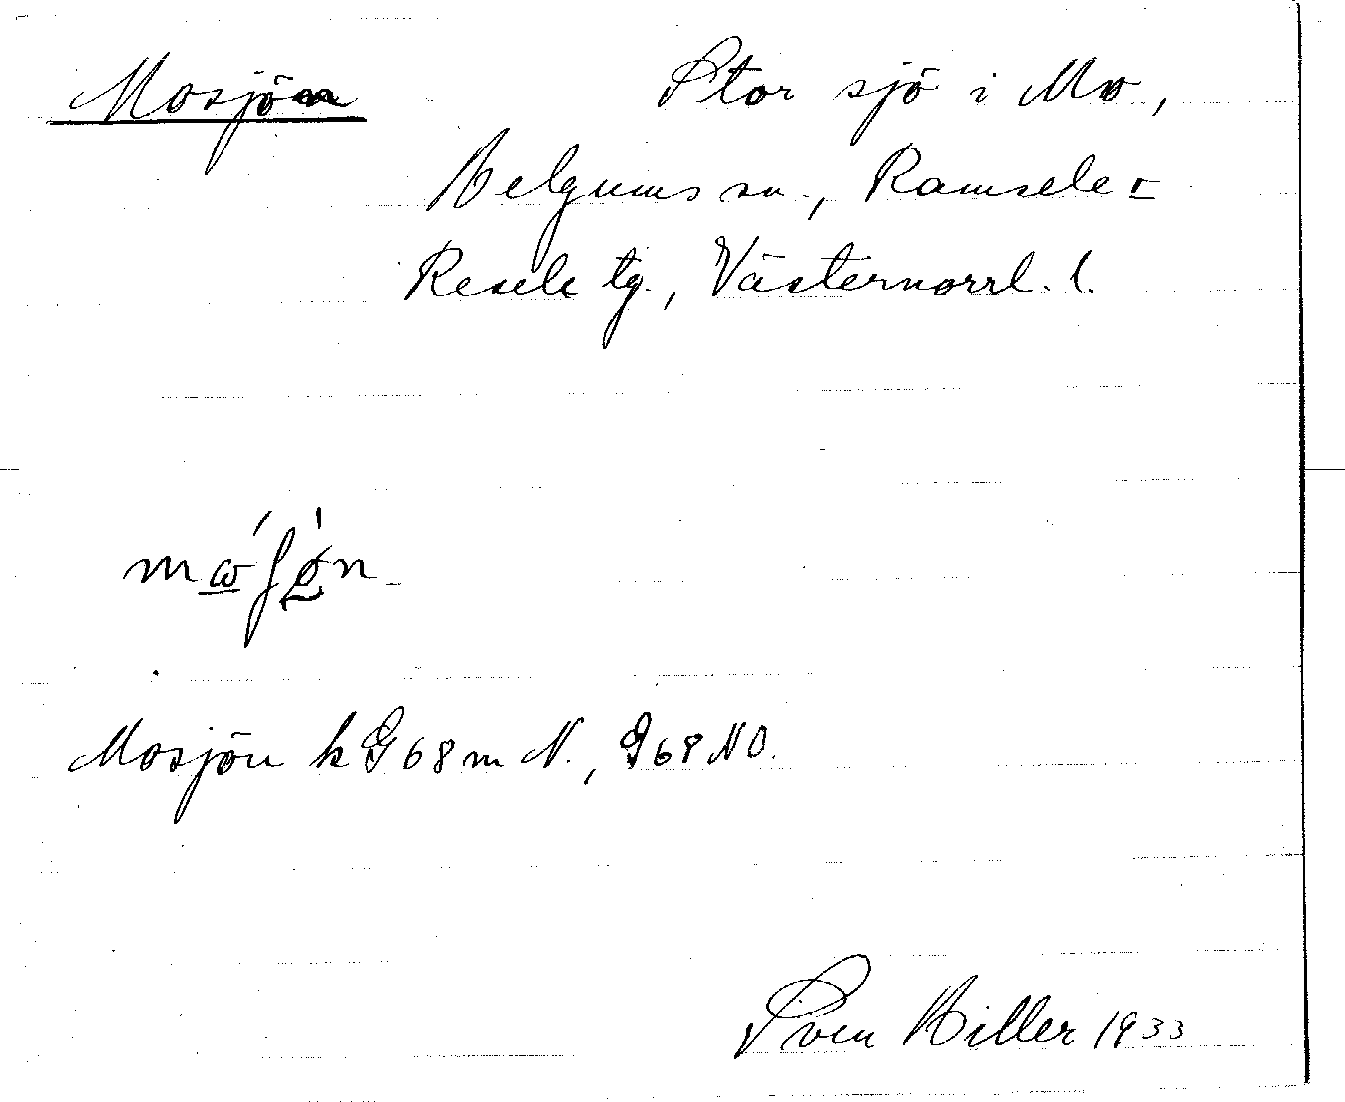 Mosjön
Stor sjö i Mo,
Helgums sn., Ramsele-
Resele tg., Västernorrl. l.
Mosjön k G68 m N., G68 NO.
Sven Hiller 1933